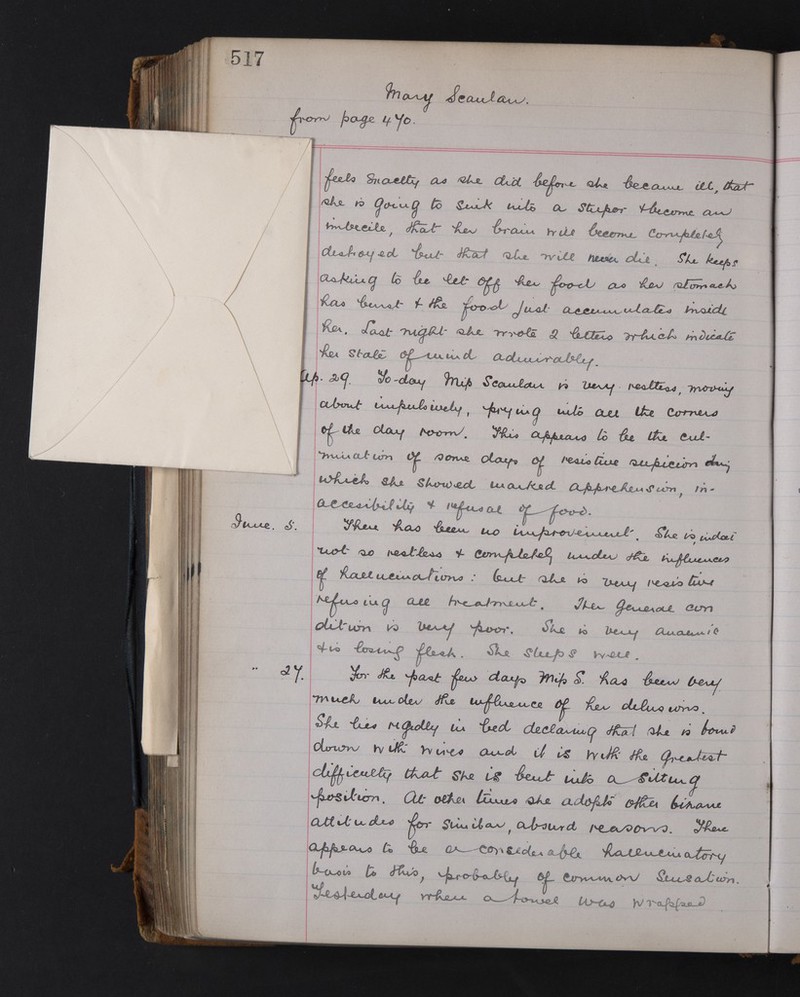 517
Mary Scanlan.
from page 470.
feels exactly as she did before she became ill, that
she is going to sink into a stupor & become an
imbecile, that her brain will become completely
destroyed but that she will never die. She keeps
asking to be let off her food as her stomach
has burst & the food just accumulates inside
her. Last night she wrote 2 letters which indicate
her state of mind admirably.
Ap. 29. To-day Miss Scanlan is very restless, moving
about impulsively, prying into all the corners
of the day room. This appears to be the cul-
mination of some days of resistive suspicion during
which she showed marked apprehension, in-
accessibility & refusal of food.
June. 5. There has been no improvement. She is, indeed
not so restless & completely under the influences
of hallucinations: but she is very resistive
refusing all treatment. Her general con
dition is very poor. She is very anaemic
& is losing flesh. She sleeps well.
" 27. For the past few days Miss S. has been very
much under the influence of her delusions.
She lies rigidly in bed declaring that she is bound
down with wires and it is with the greatest
difficulty that she is bent into a sitting
position. At other times she adopts other bizarre
attitudes for similar, absurd reasons. There
appears to be a considerable hallucinatory
basis to this, probably of common sensation.
Yesterday when a towel was wrapped